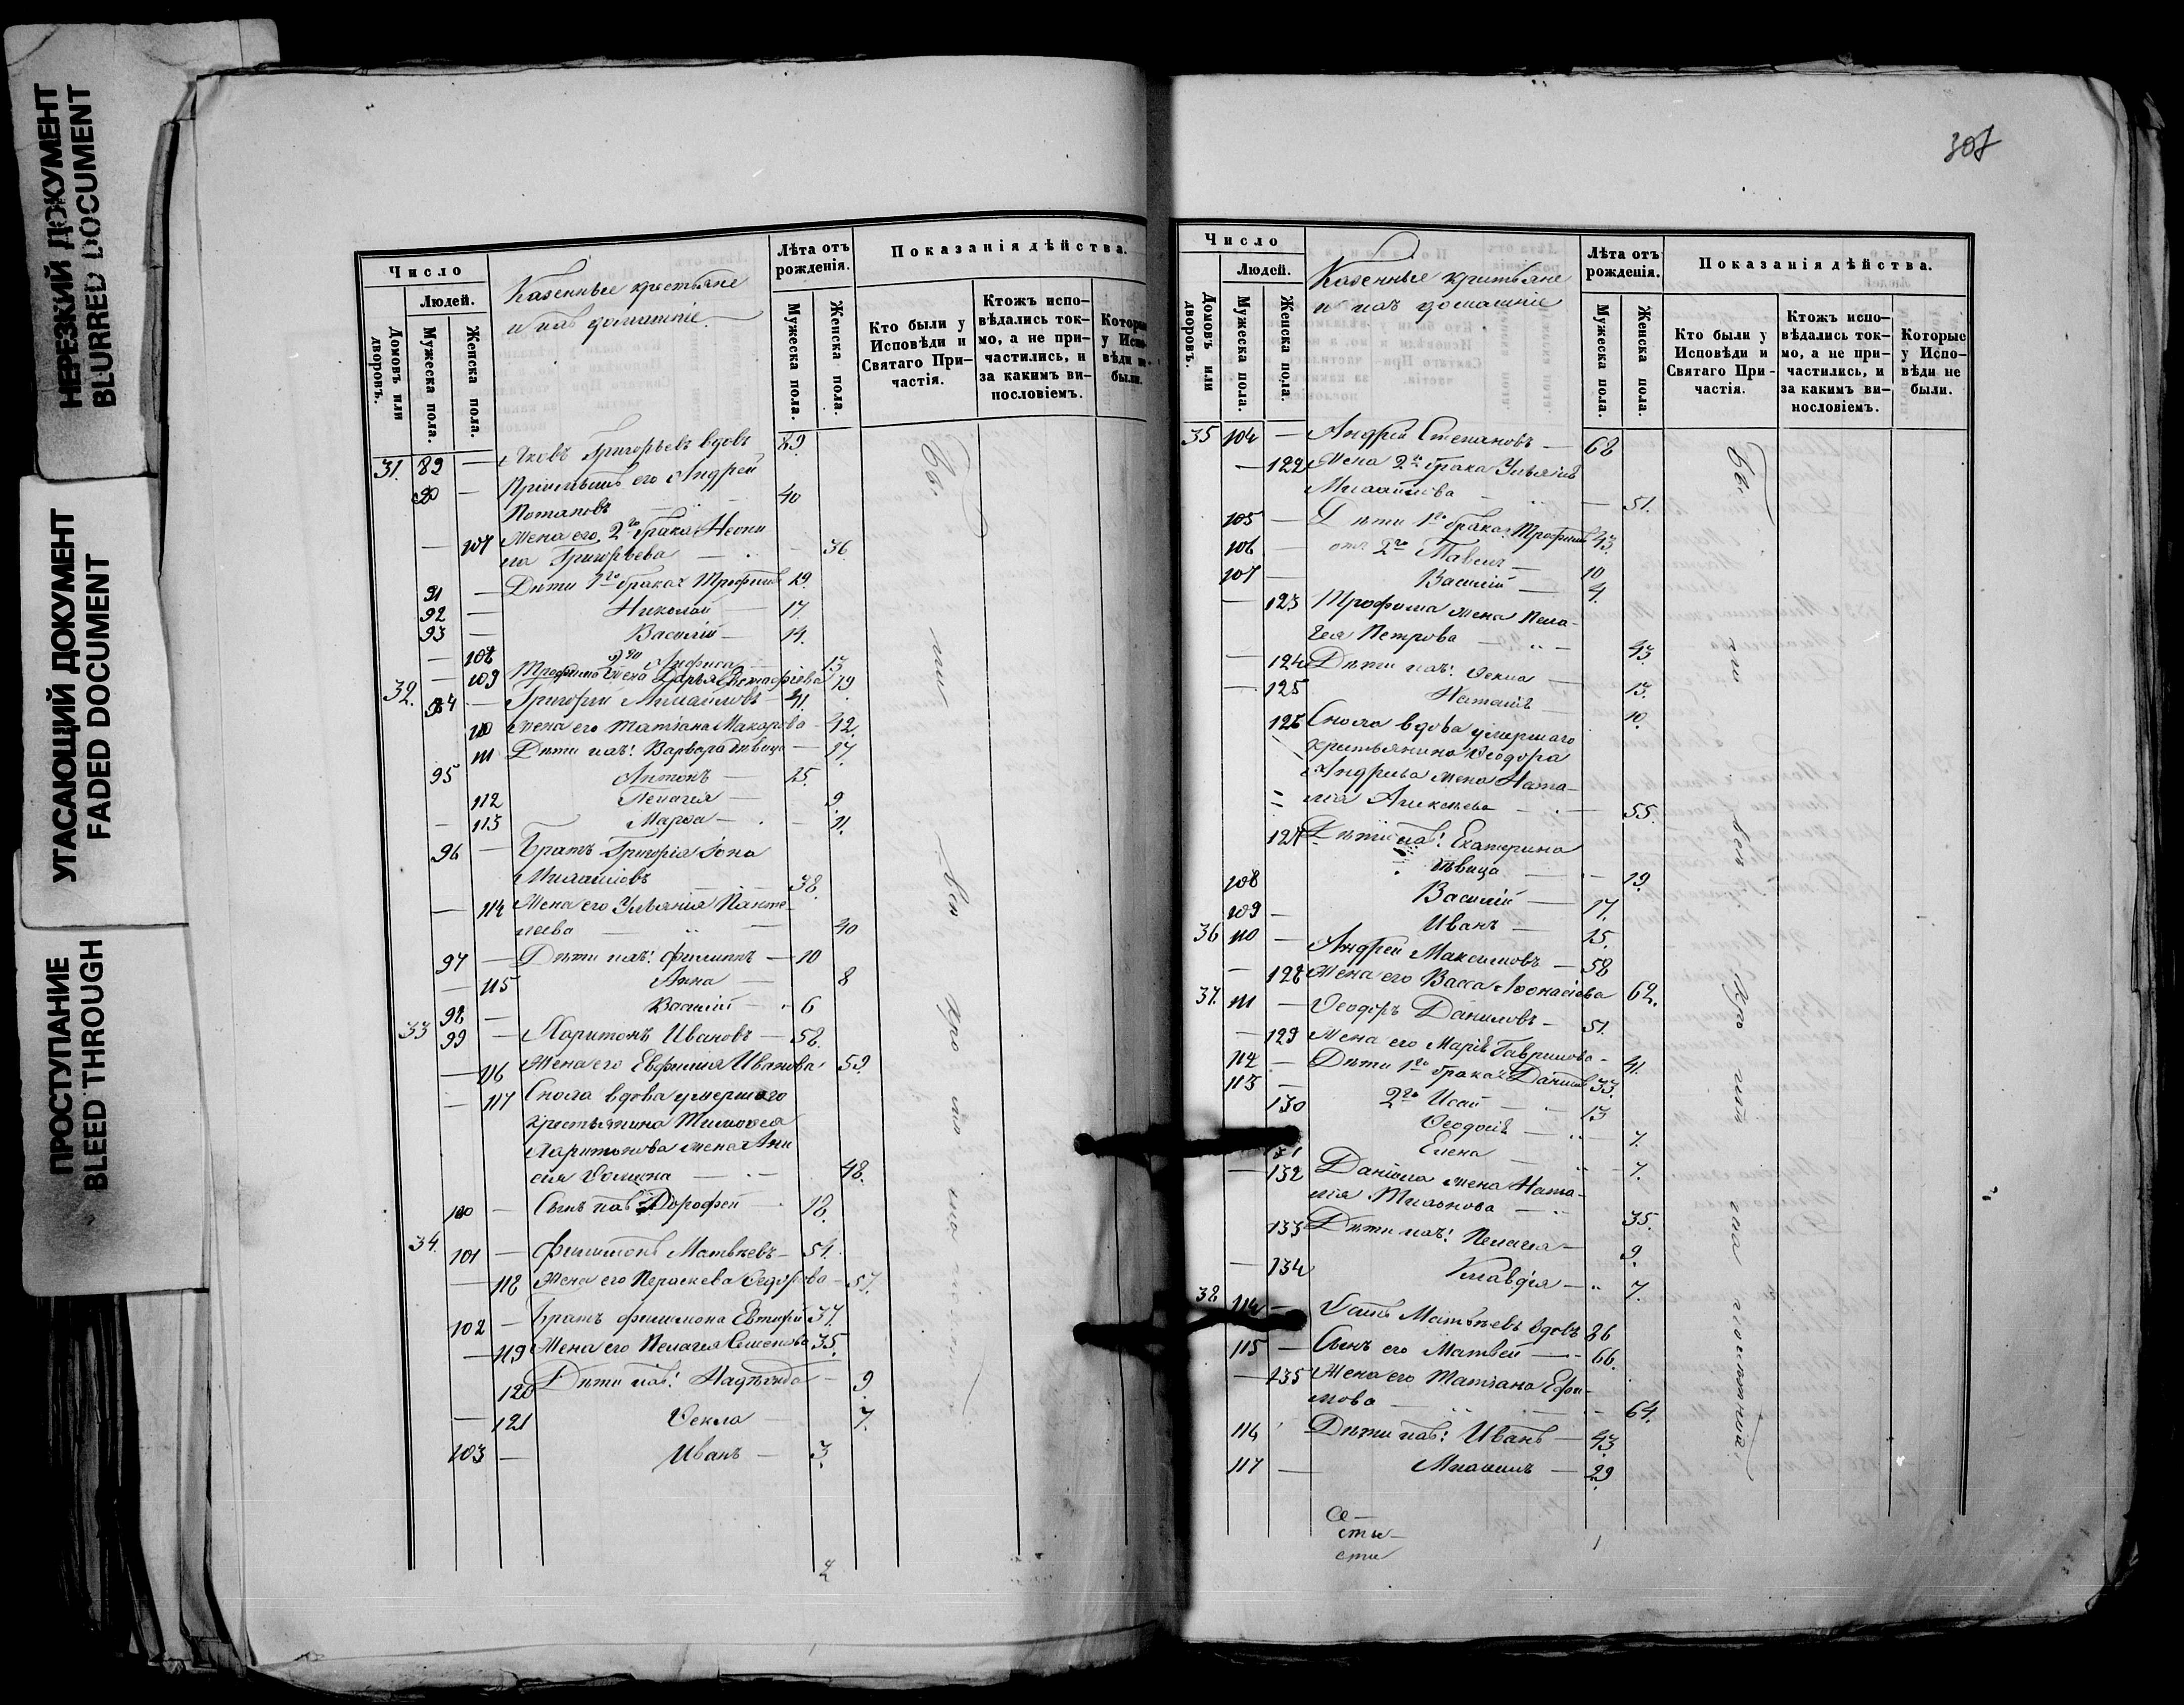 НЕРЕЗКИЙ ДОКУМЕНТ
BLURRED DOCUMENT
УГАСАЮЩИЙ ДОКУМЕНТ
FADED DOCUMENT
ПРОСТУПАНИЕ
BLEED THROUGH
Число
Людей.
Домовъ или дворовъ.
Мужеска пола.
Женска пола.
Казенные крестьяне
и ихъ домашніе.
Лѣта отъ рожденія.
Мужеска пола.
Женска пола.
Показанія дѣйства.
Кто были у Исповѣди и Святаго Причастія.
Ктожъ исповѣдались токмо, а не причастились, и за какимъ винословіемъ.
Которые у Исповѣди не были.
31. 89 — Яковъ Григорьевъ вдовъ 89.
90 — Пріемышъ его Андрей
Потаповъ 40
— 107 Жена его 2го брака Неони
ла Григорьева — 36.
91 — Дѣти 1го брака: Трофимъ 19.
92 — Николай — 17.
93 — Василій — 14.
— 108 2го Анфиса — 13
— 109 Трофима жена Дарья 19
32. 94 — Григорій Михайловъ — 41.
110 Жена его Татіана Макарова — 42.
111 Дѣти ихъ: Варвара дѣвица — 17.
95 Антонъ — 15.
112 Пелагія — 9.
— 113 Марѳа — 11.
96 — Братъ Григорія Іона
Михайловъ 38.
— 114 Жена его Ульянія Панте-
леева — 40
97 — Дѣти ихъ: Филиппъ — 10
— 115 Анна — 8
98 — Василій — 6
33 99 — Харитонъ Ивановъ — 58.
— 116 Жена его Евфимія Иванова 59.
— 117 Сноха вдова умершаго
крестьянина Тимоѳея
Харитонова жена Ани
сія Ѳомина — 48.
100 — Сынъ ихъ Дорофей — 18.
34. 101 — Филимонъ Матвѣевъ — 54.
— 118 Жена его Параскева Ѳедорова — 57.
102 — Братъ Филимона Евтифій 37.
— 119 Жена его Пелагія Семенова 35.
120 Дѣти ихъ: Надежда — 9.
— 121 Ѳекла — 7.
103 — Иванъ — 3.
307
Число
Людей.
Домовъ или дворовъ.
Мужеска пола.
Женска пола.
Казенные крестьяне
и ихъ домашніе
Лѣта отъ рожденія.
Мужеска пола.
Женска пола.
Показанія дѣйства.
Кто были у Исповѣди и Святаго Причастія.
Ктожъ исповѣдались токмо, а не причастились, и за какимъ винословіемъ.
Которые у Исповѣди не были.
35 104 — Андрей Степановъ — 68
— 122 Жена 2го брака Ульянія
Михайлова — 51.
105 — Дѣти 1го брака: Трофимъ 43.
106 — отъ 2го Павелъ — 10
107 — Василій — 4.
— 123 Трофима жена Пела-
гея Петрова — 43.
— 124 Дѣти ихъ: Ѳекла — 13.
— 125 Наталія — 10.
126 Сноха вдова умершаго
крестьянина Ѳеодора
Андреева жена Ната-
лія Алексѣева — 55.
127 Дѣти ихъ: Екатерина
дѣвица — 19.
108 Василій — 17.
109 — Иванъ — 15.
36 110 — Андрей Максимовъ — 58
— 128 Жена его Васса Аѳонасіева 62.
37. 111 — Ѳеодоръ Даниловъ — 51.
— 129 Жена его Марія Гаврилова — 41.
112 — Дѣти 1го брака: Даніилъ 33.
113 — 2го Исай — 13
130 Ѳеодосія — 7.
131 Елена — 7.
— 132 Даніила жена Ната-
лія Тихонова — 35.
133 Дѣти ихъ: Пелагія — 9.
— 134 Клавдія — 7.
38 114 — Матвѣевъ вдовъ 86
115 — Сынъ его Матвей — 66.
— 135 Жена его Татіана Ефи-
мова — 64.
116 Дѣти ихъ: Иванъ — 43.
117 — Михаилъ — 29